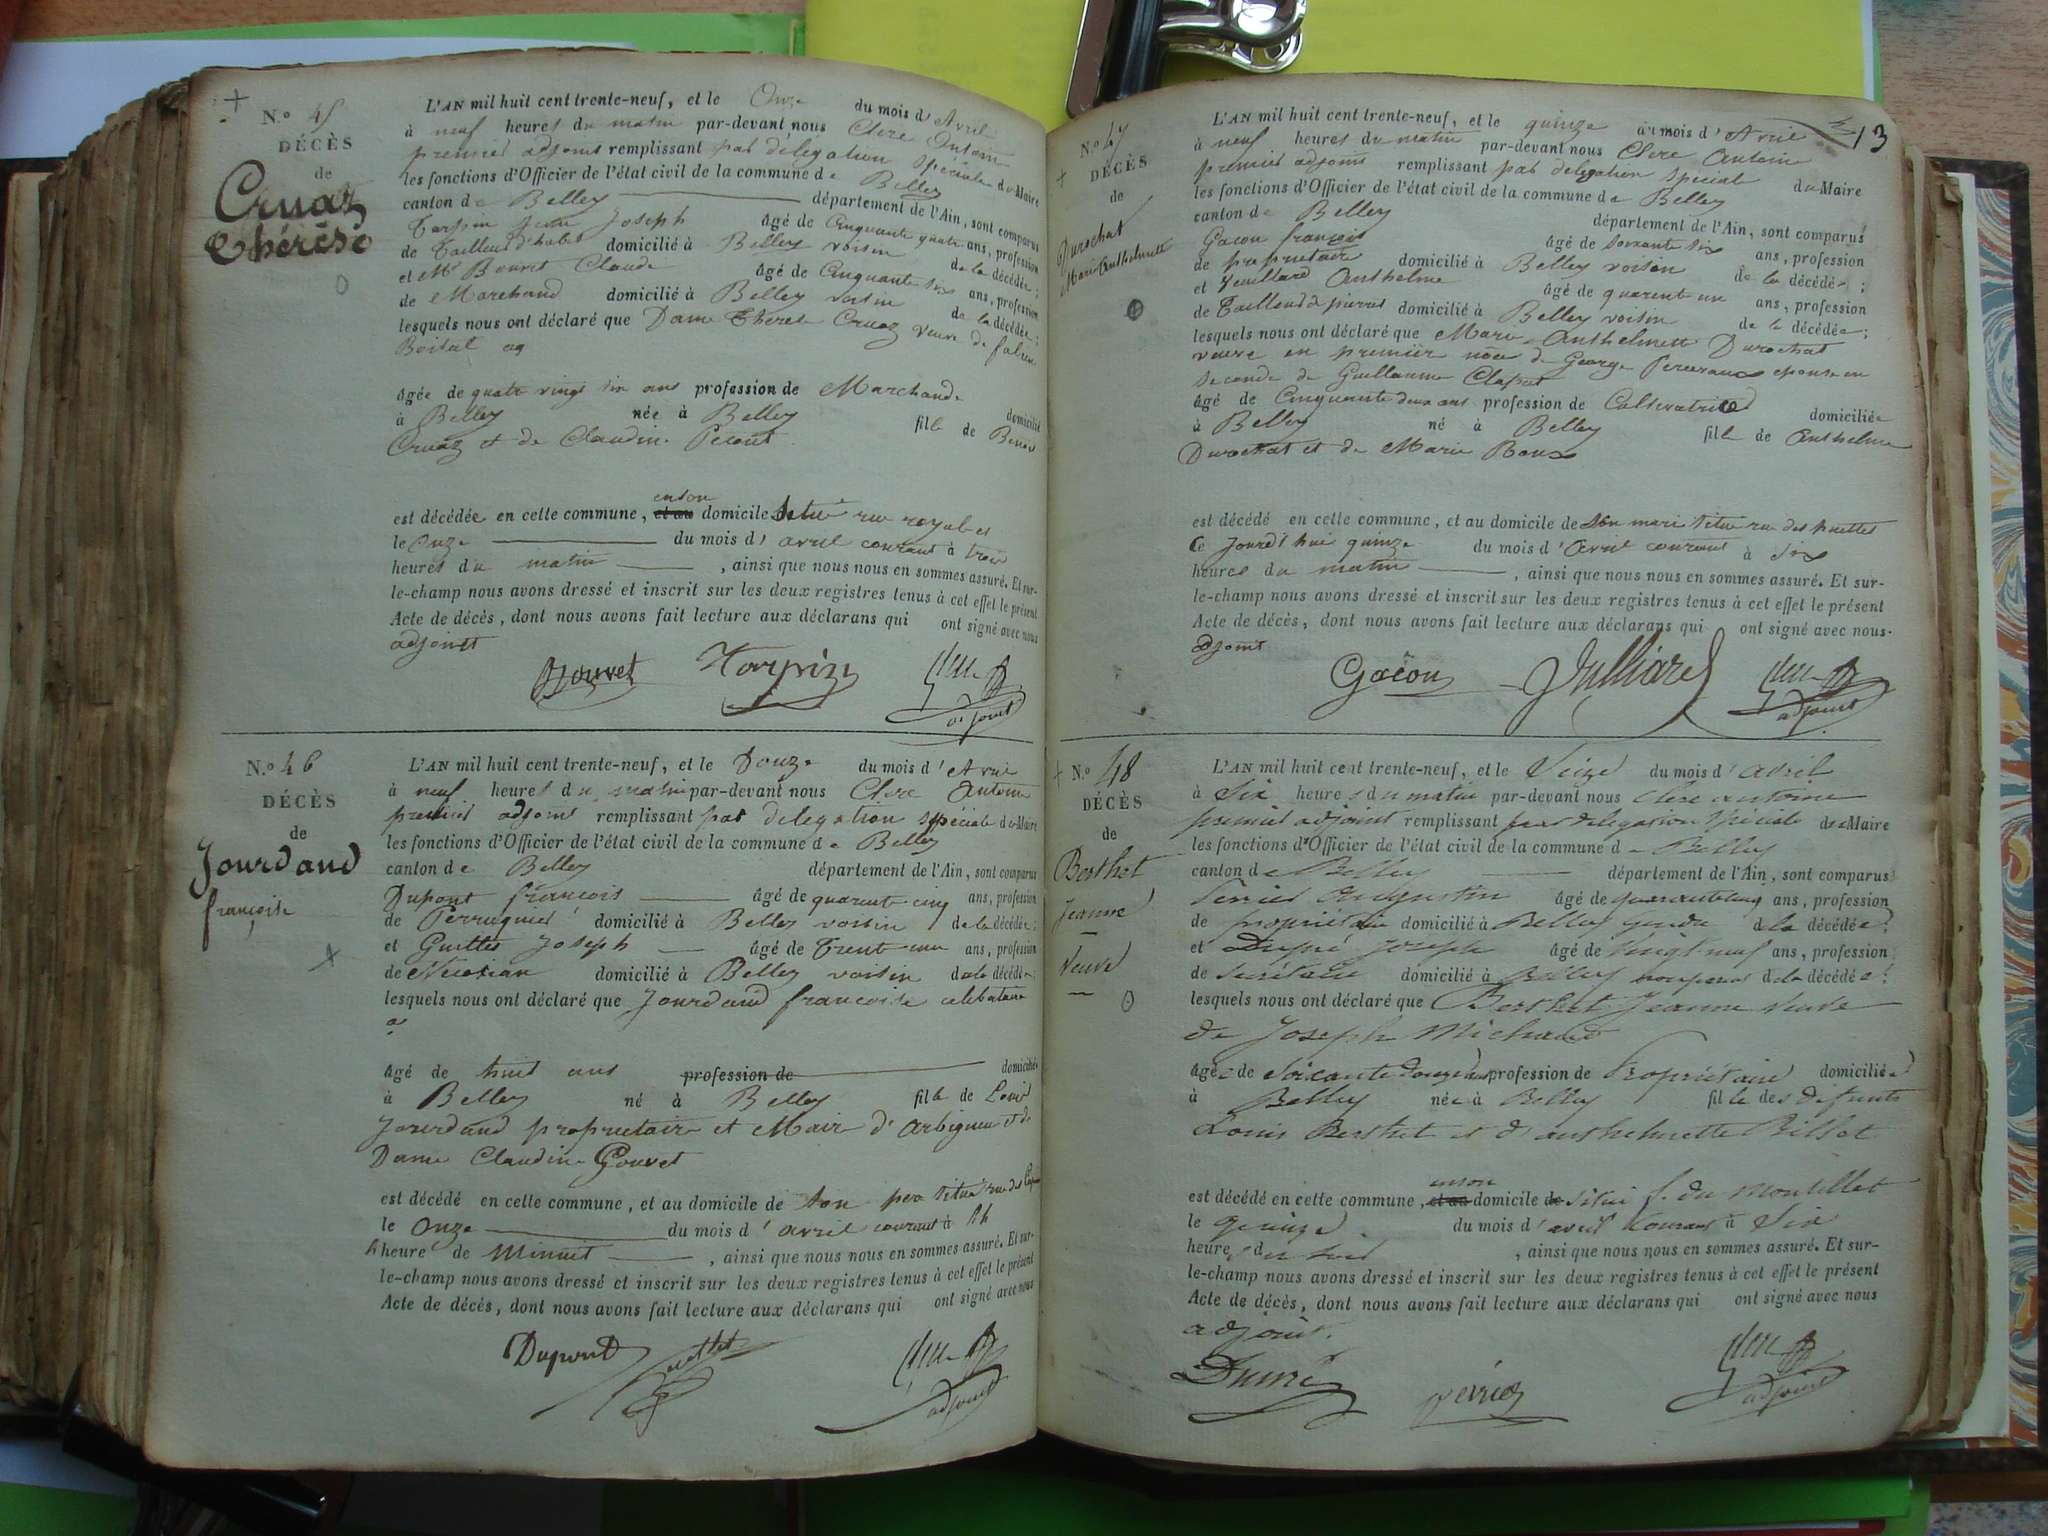 N.o 45
DÉCÈS
de
Cruaz
Thérèse
L'AN mil huit cent trente-neuf, et le Onze du mois d'Avril
à neuf heures du matin par-devant nous Clerc Antoine
premier adjoint remplissant par délégation spéciale du Maire
les fonctions d'Officier de l'état civil de la commune de Belley
canton de Belley département de l'Ain, sont comparus
Tarpin Joseph âgé de Cinquante quatre ans, profession
de Tailleur d'habits domicilié à Belley voisin de la décédée;
et Mr Bouvet Claude âgé de Cinquante six ans, profession
de Marchand domicilié à Belley voisin de la décédée;
lesquels nous ont déclaré que Dame Therese Cruaz veuve de
âgée de quatre vingt six ans profession de Marchande domicilié
à Belley née à Belley fille de
Cruaz et de Claudine
est décédée en cette commune, et au enson domicile situé rue royale
le Onze du mois d'avril courant à trois
heures du matin, ainsi que nous nous en sommes assuré. Et sur-
le-champ nous avons dressé et inscrit sur les deux registres tenus à cet effet le présent
Acte de décès, dont nous avons fait lecture aux déclarans qui ont signé avec nous
adjoint
Bouvet Tarpin Clerc A
adjoint
N.o 46
DÉCÈS
de
Jourdand
françoise
L'AN mil huit cent trente-neuf, et le Douze du mois d'Avril
à neuf heures du matin par-devant nous Clerc Antoine
premier adjoint remplissant par delegation spéciale du Maire
les fonctions d'Officier de l'état civil de la commune de Belley
canton de Belley département de l'Ain, sont comparus
Dupont françois âgé de quarent cinq ans, profession
de Perruquier domicilié à Belley voisin de la décédée;
et Guillet Joseph âgé de Trent un ans, profession
de domicilié à Belley voisin de la décédé
lesquels nous ont déclaré que Jourdand francoise celebataire
âgé de huit ans profession de domicilié
à Belley né à Belley fille de Loui
Jourdand propriétaire et Mair d'Arbignieu et de
Dame Claudine Gouvet
est décédé en cette commune, et au domicile de son per situé rue des
le Onze du mois d'avril courant à
heure de Minuit, ainsi que nous nous en sommes assuré. Et sur-
le-champ nous avons dressé et inscrit sur les deux registres tenus à cet effet le présent
Acte de décès, dont nous avons fait lecture aux déclarans qui ont signé avec nous
Dupont Clerc A
adjoint
13
N.o 47
DÉCÈS
de
Durochat
Marie Anthelmette
L'AN mil huit cent trente-neuf, et le quinze du mois d'Avril
à neuf heures du matin par-devant nous Clerc Antoine
premier adjoint remplissant par delegation spéciale du Maire
les fonctions d'Officier de l'état civil de la commune de Belley
canton de Belley département de l'Ain, sont comparus
Gacon françois âgé de soixante six ans, profession
de propriétaire domicilié à Belley voisin de la décédée;
et Anthelme âgé de quarent un ans, profession
de Tailleur de pierres domicilié à Belley voisin de la décédée;
lesquels nous ont déclaré que Marie Anthelmett Durochat
veuve en premier noce de George epouse en
seconde de Guillaume
âgé de Cinquante deux ans profession de Cultivatrice domiciliée
à Belley né à Belley fille de Anthelme
Durochat et de Marie Roux
est décédé en cette commune, et au domicile de son mari situé rue des
Ce Jourd'hui quinze du mois d'Avril courant à six
heures du matin, ainsi que nous nous en sommes assuré. Et sur-
le-champ nous avons dressé et inscrit sur les deux registres tenus à cet effet le présent
Acte de décès, dont nous avons fait lecture aux déclarans qui ont signé avec nous.
adjoint
Gacon Julliard Clerc A
adjoint
N.o 48
DÉCÈS
de
Berthet
Jeanne
Veuve
L'AN mil huit cent trente-neuf, et le Seize du mois d'avril
à Six heures du matin par-devant nous clerc antoine
premier adjoint remplissant par délégation spéciale du Maire
les fonctions d'Officier de l'état civil de la commune de Belley
canton de Belley département de l'Ain, sont comparus
Augustin âgé de quarante cinq ans, profession
de propriétaire domicilié à Belley Gendre de la décédée;
et Joseph âgé de vingt neuf ans, profession
de Secrétaire domicilié à Belley non parent de la décédée;
lesquels nous ont déclaré que Berthet Jeanne veuve
de Joseph Michaud
âgée de soixante douze ans profession de Propriétaire domiciliée
à Belley née à Belley fille des défunts
Louis Berthet et d'anthelmette Billet
est décédé en cette commune, et au enson domicile de situé f. du Montillet
le quinze du mois d'avril courant à Six
heure du soir, ainsi que nous nous en sommes assuré. Et sur-
le-champ nous avons dressé et inscrit sur les deux registres tenus à cet effet le présent
Acte de décès, dont nous avons fait lecture aux déclarans qui ont signé avec nous
adjoint.
Clerc A
adjoint